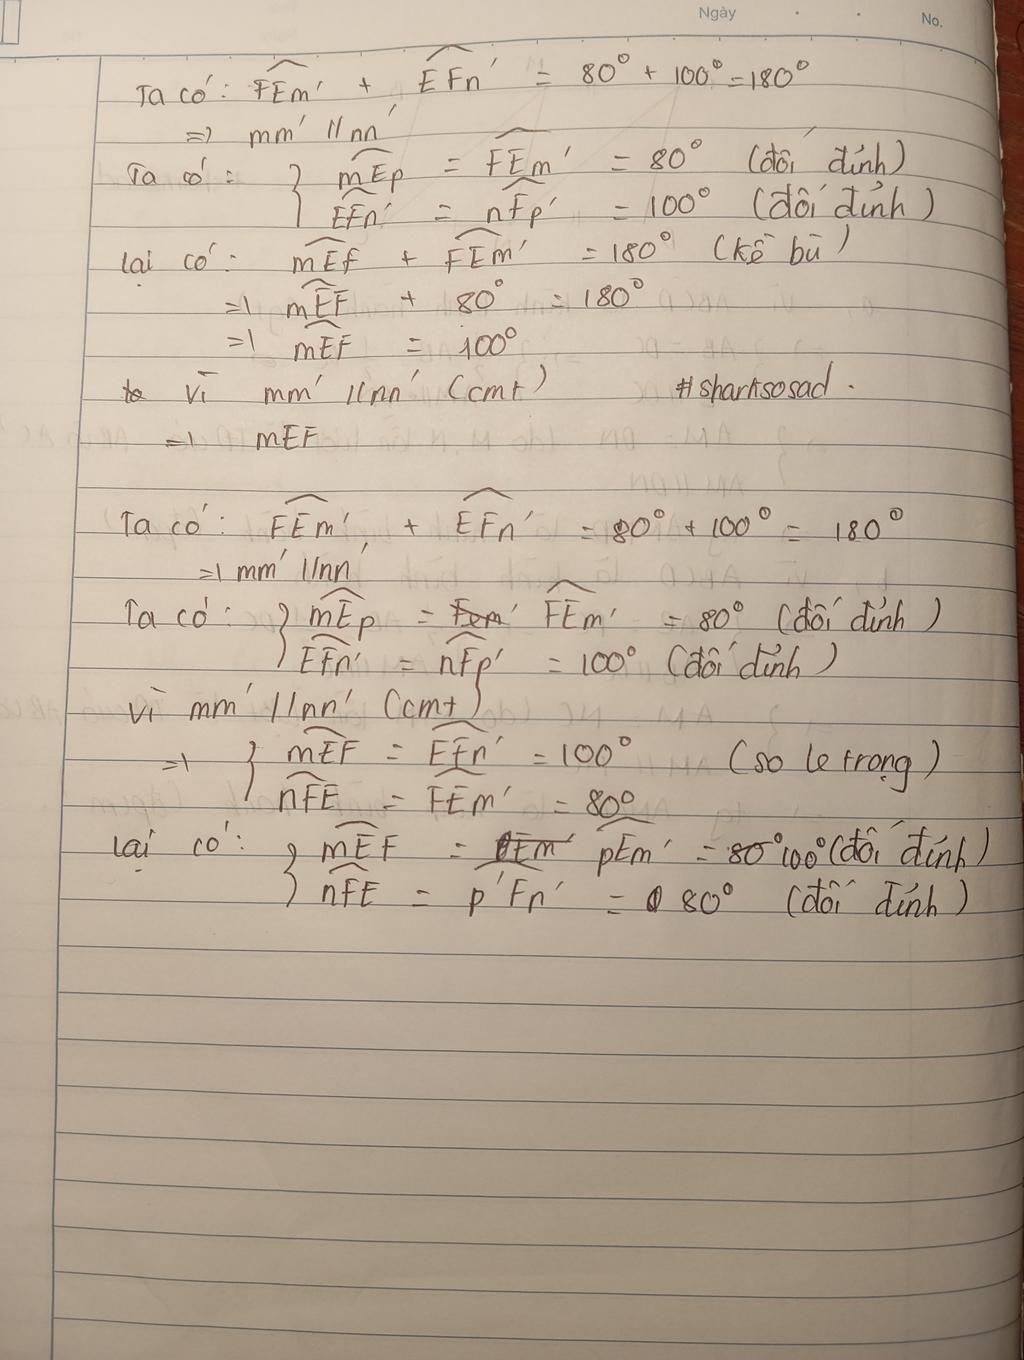 Ngày
No.
Ta có: FEm' + EFn' = 80° + 100° = 180°
=> mm' // nn'
Ta có: { mEp = FEm' = 80° (đối đỉnh)
EFn' = nFp' = 100° (đối đỉnh)
lại có: mEF + FEm' = 180° (kề bù)
=> mEF + 80° = 180°
=> mEF = 100°
Vì mm' // nn' (cmt) #sharksosad.
=> mEF
Ta có: FEm' + EFn' = 80° + 100° = 180°
=> mm' // nn'
Ta có: { mEp = FEm' = 80° (đối đỉnh)
EFn' = nFp' = 100° (đối đỉnh)
Vì mm' // nn' (cmt)
=> { mEF = EFn' = 100° (so le trong)
nFE = FEm' = 80°
lại có: { mEF = pEm' = 100° (đối đỉnh)
nFE = p'Fn' = 80° (đối đỉnh)